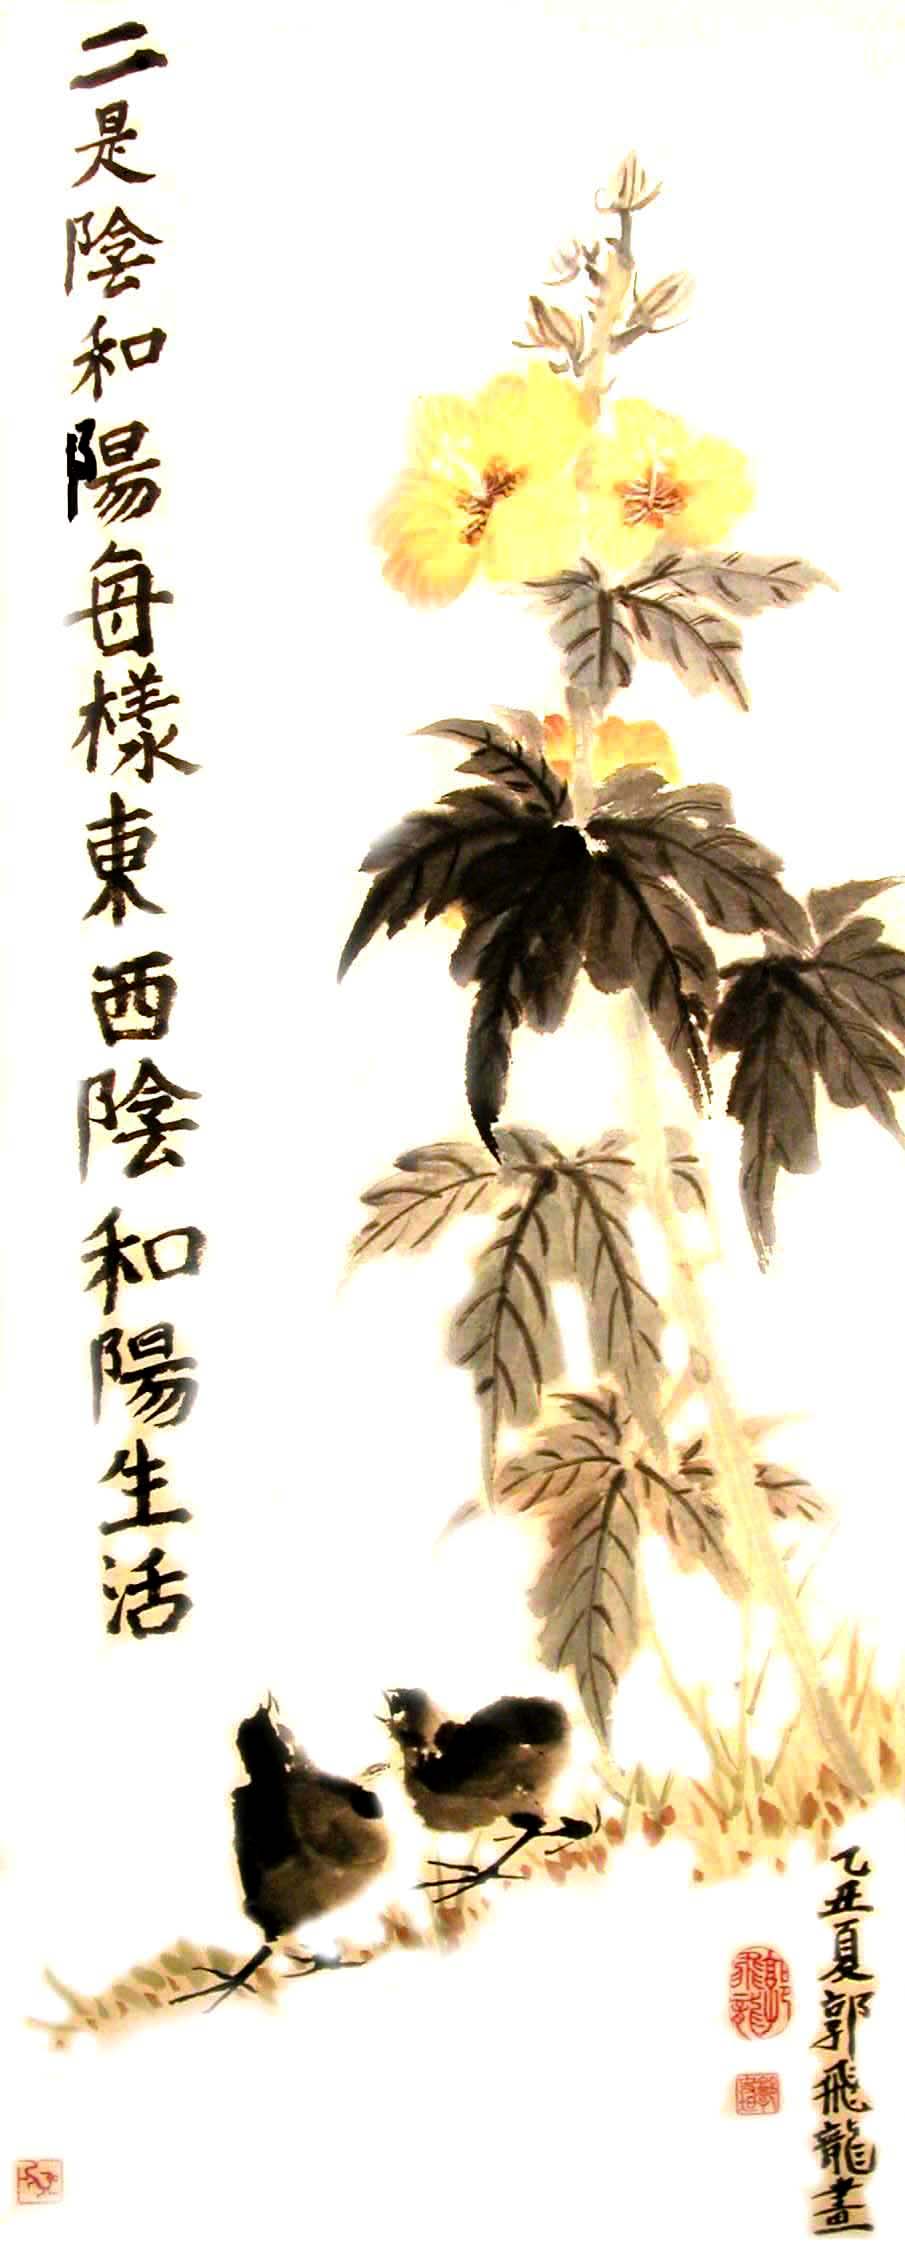 二是陰和陽每樣東西陰和陽生活
乙丑夏郭飛龍畫
郭飛龍